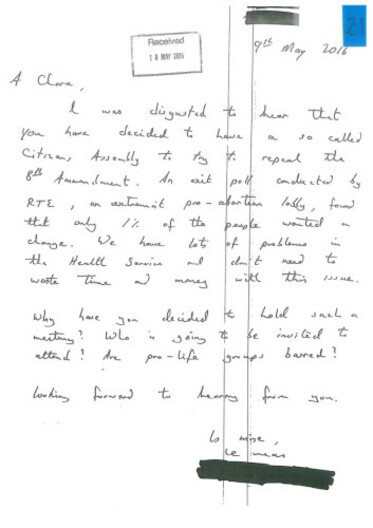 21
Received
18 MAY 2016
9th May 2016
A Chara,
I was disgusted to hear that
you have decided to have a so called
Citizens Assembly to try to repeal the
8th Ammendment. An exit poll conducted by
RTE, an extremist pro-abortion lobby, found
that only 1% of the people wanted a
change. We have lots of problems in
the Health Service and don't need to
waste time and money with this issue.
Why have you decided to hold such a
meeting? Who is going to be invited to
attend? Are pro-life groups barred?
Looking forward to hearing from you.
Is mise,
le meas